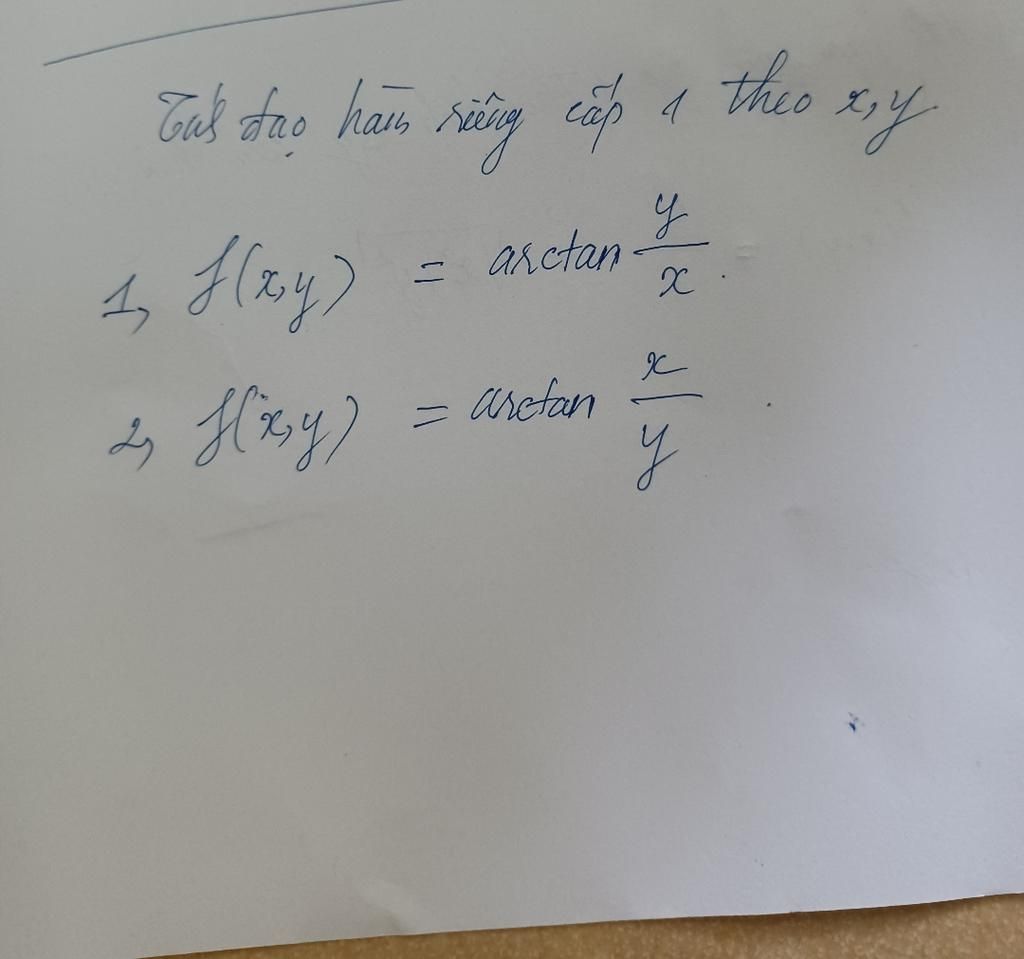 Tính đạo hàm riêng cấp 1 theo x, y
1, f(x,y) = arctan y/x.
2, f(x,y) = arctan x/y.